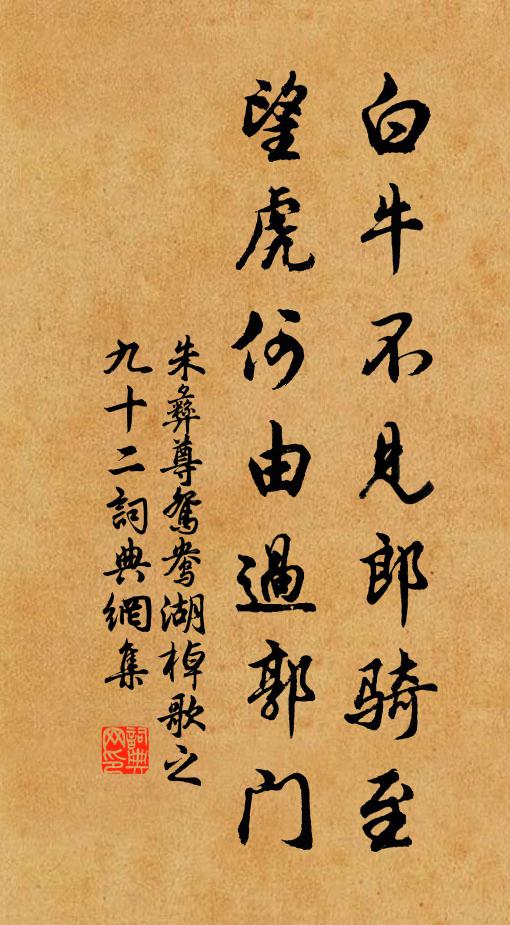 白牛不見郎騎至
望虎何由過郭門
朱彝尊鴛鴦湖棹歌之
九十二詞典網集
詞典網印